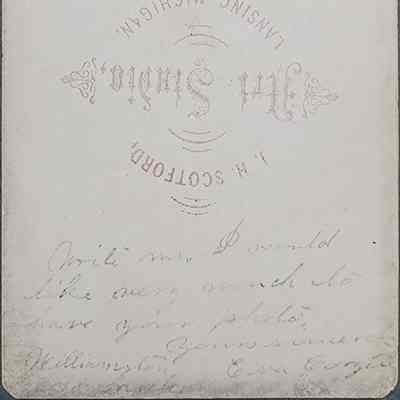 J. H. SCOTFORD,
Art Studio,
LANSING, MICHIGAN.
Write me, I would
like very much to
have your photo,
Yours sincere
Williamston